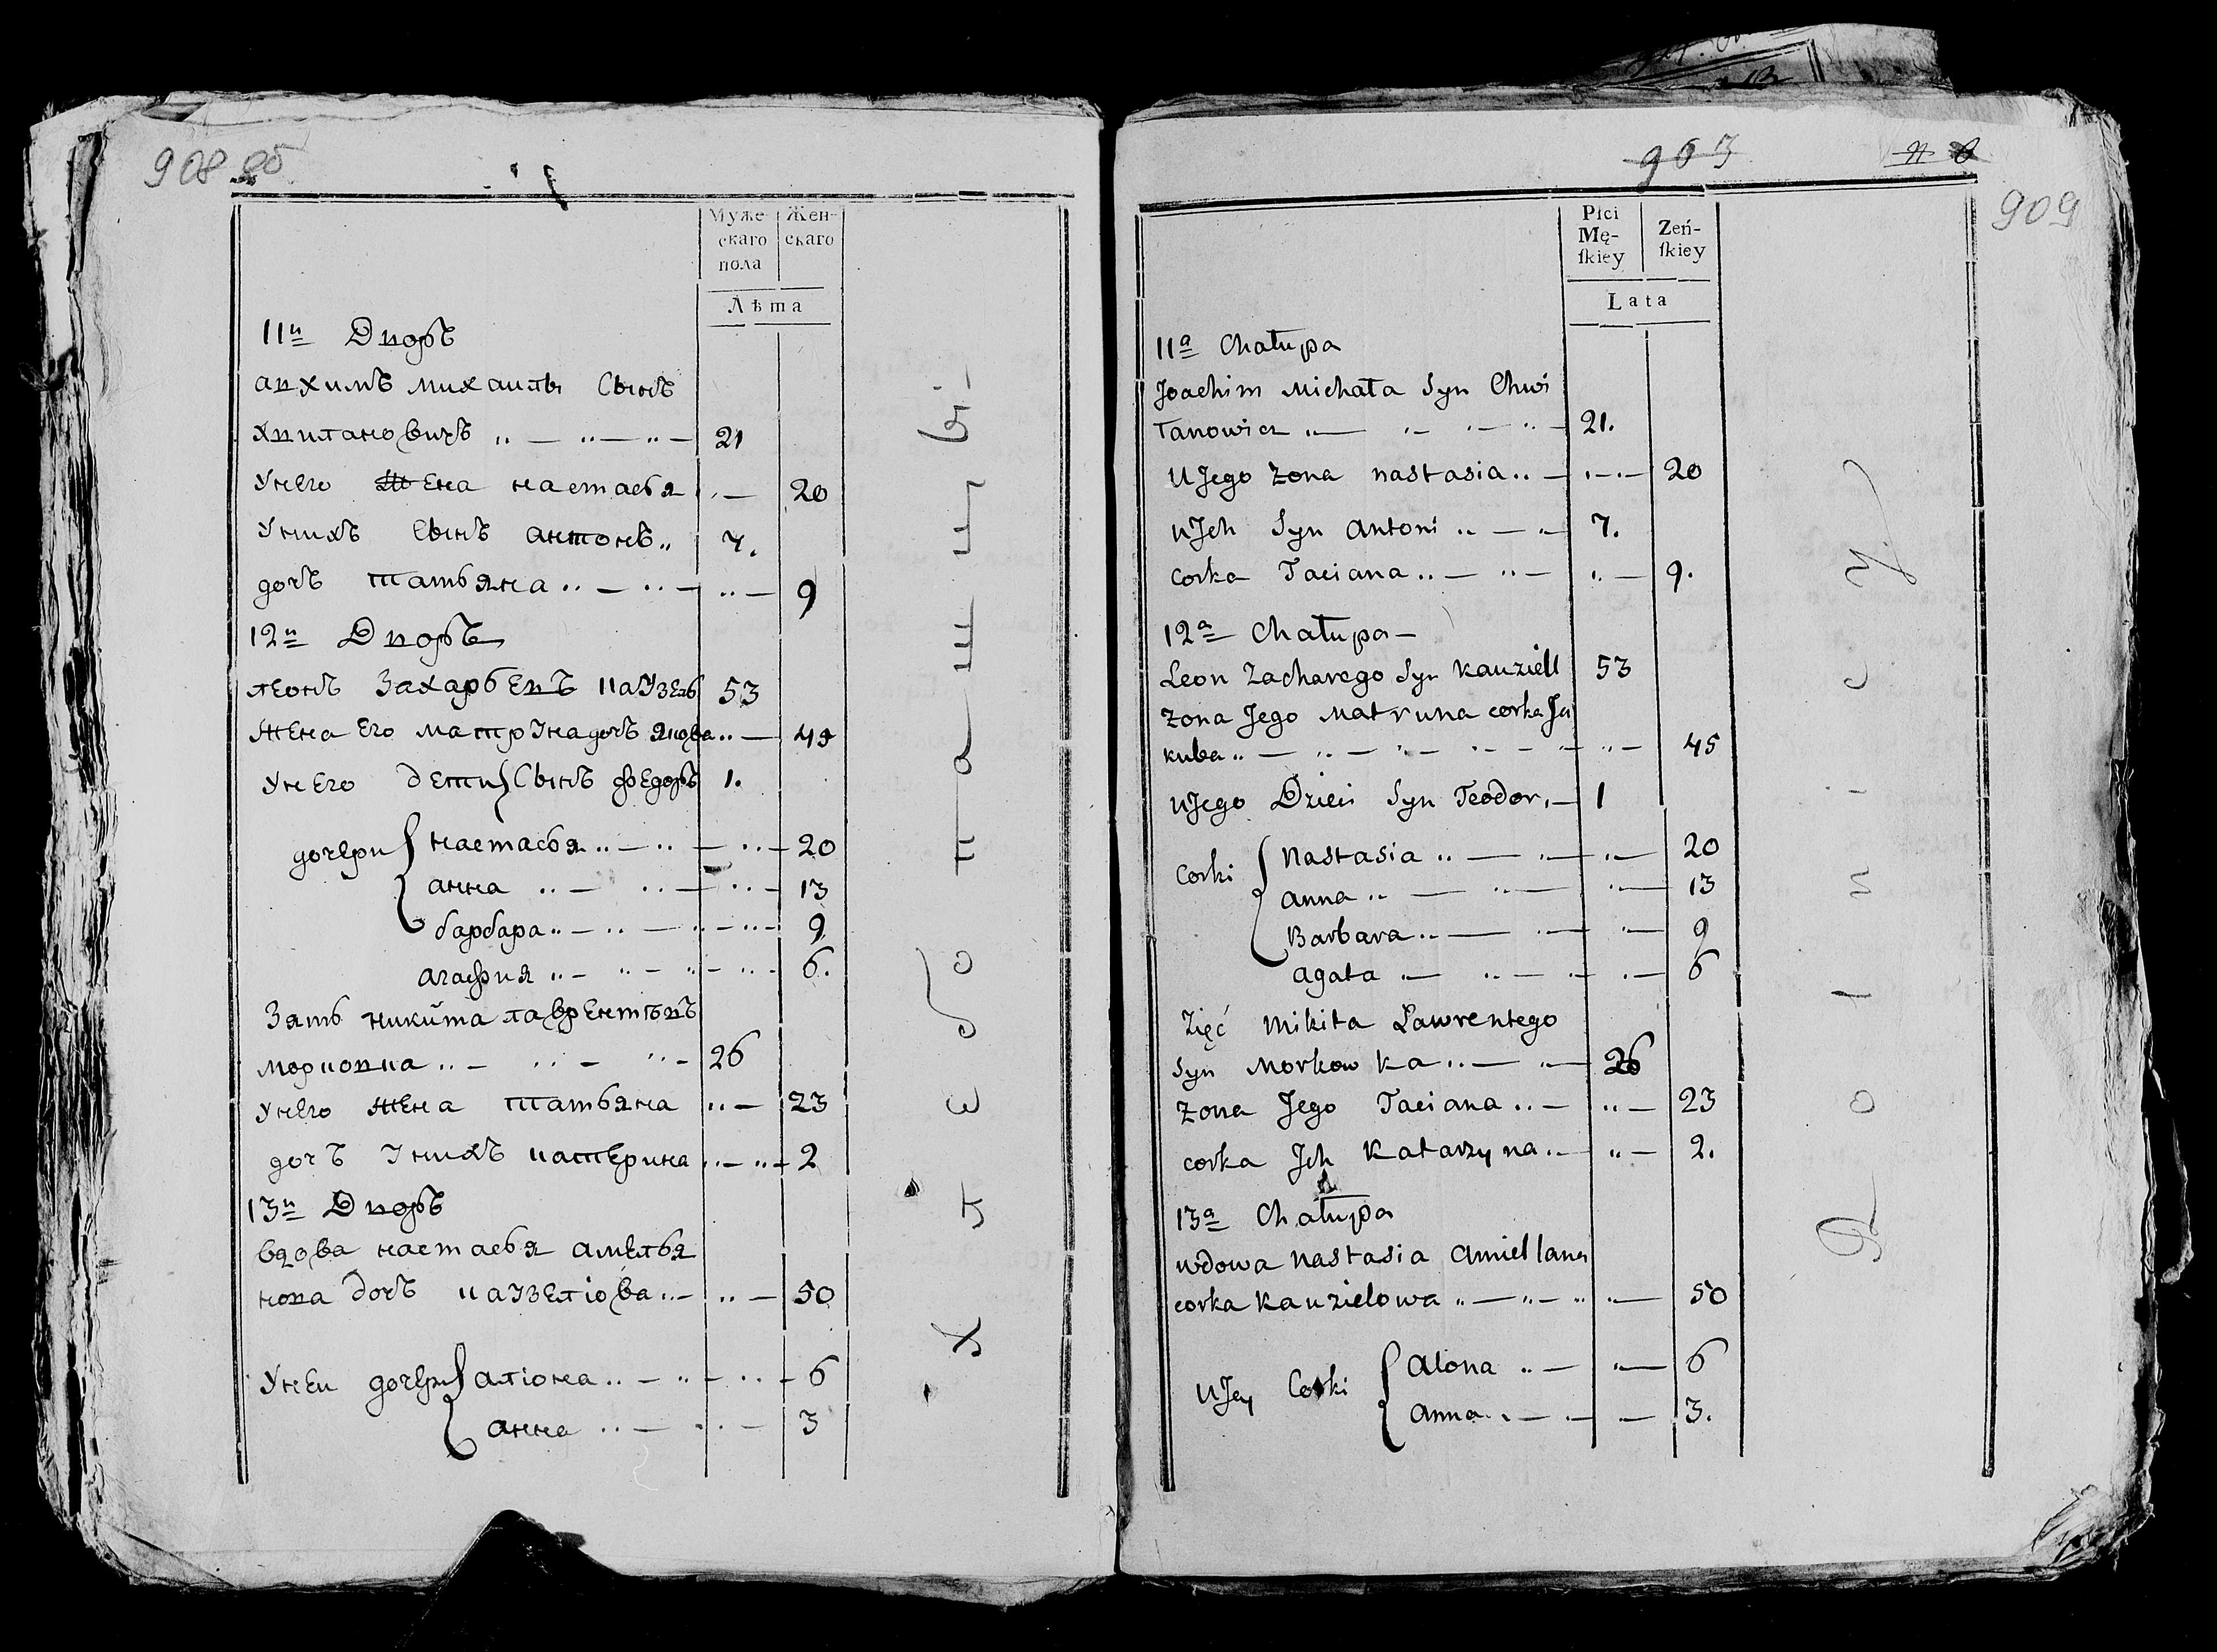 908 об
Муже-
скаго
пола
Жен-
скаго
Лѣта
11й Дворъ
авхимъ михаилы Сынъ
хвитановичъ 21
унего жена настасья 20
унихъ сынъ антонъ 7.
дочъ татьяна 9
12й Дворъ
леонъ Захарьевъ каузель 53
жена его матруна дочъ якова 45
унего дети сынъ федоръ 1.
дочери настасья 20
анна 13
барбара 9
агафия 6.
Зять никита лаврентьевъ
морковка 26
унего жена татьяна 23
дочъ унихъ катерина 2
13й Дворъ
вдова настасья амелья
нова дочъ каузеліова 50
унеи дочери аліона 6
анна 3
хлебопашцы
903
909
Płci
Mę-
ſkiey
Zeń-
ſkiey
Lata
11a Chałupa
Joachim Michała Syn Chwi
tanowicz 21.
U Jego zona nastasia 20
u Jch Syn antoni 7.
corka Taciana 9.
12a Chałupa
Leon Zacharego Syn Kauziell 53
zona Jego Matruna corka Ja
kuba 45
u Jego Dzieci Syn Teodor 1
Corki Nastasia 20
anna 13
Barbara 9
agata 6
Zięć Mikita Lawrentego
Syn Morkowka 26
zona Jego Taciana 23
corka Jch Katarzyna 2.
13a Chałupa
wdowa Nastasia amiellana
corka Kauzielowa 50
u Jey Corki alona 6
anna 3.
Rolnicy